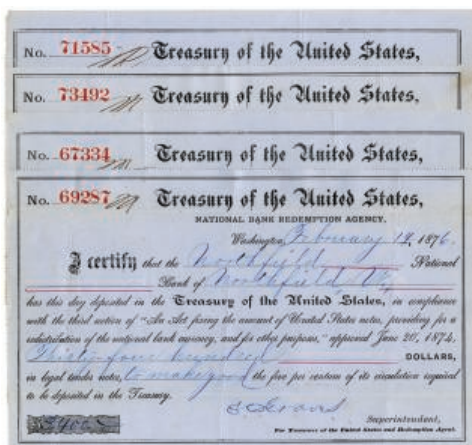 No. 71585 Treasury of the United States,
No. 73492 Treasury of the United States,
No. 67334 Treasury of the United States,
No. 69287 Treasury of the United States,
NATIONAL BANK REDEMPTION AGENCY.
Washington, February 19, 1876.
I certify that the Northfield National
Bank of Northfield, Vt,
has this day deposited in the Treasury of the United States, in compliance
with the third section of "An Act fixing the amount of United States notes, providing for a
redistribution of the national bank currency, and for other purposes," approved June 20, 1874,
Thirty four hundred DOLLARS,
in legal tender notes, to make good the five per centum of its circulation required
to be deposited in the Treasury.
Superintendent,
For Treasurer of the United States and Redemption Agent.